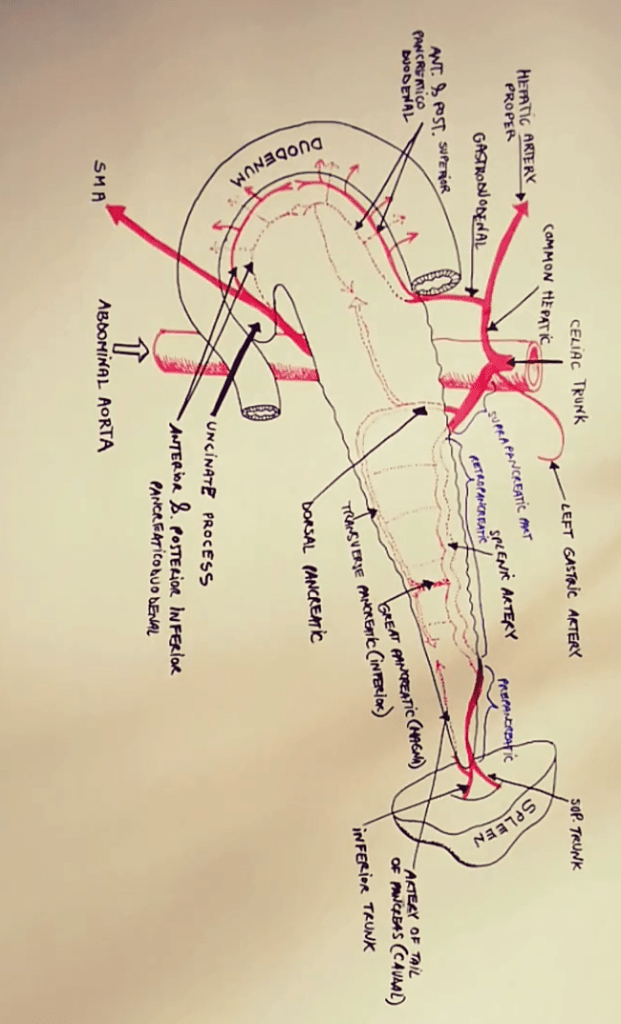 HEPATIC ARTERY
PROPER
COMMON HEPATIC
CELIAC TRUNK
LEFT GASTRIC ARTERY
SUP. TRUNK
GASTRODUODENAL
ANT. & POST. SUPERIOR
PANCREATICO
DUODENAL
SUPRAPANCREATIC PART
RETROPANCREATIC
SPLENIC ARTERY
PREPANCREATIC
SPLEEN
DUODENUM
SMA
ABDOMINAL AORTA
UNCINATE PROCESS
ANTERIOR & POSTERIOR INFERIOR
PANCREATICODUODENAL
DORSAL PANCREATIC
TRANSVERSE PANCREATIC (INFERIOR)
GREAT PANCREATIC (MAGNA)
INFERIOR TRUNK
ARTERY OF TAIL
OF PANCREAS (CAUDAL)